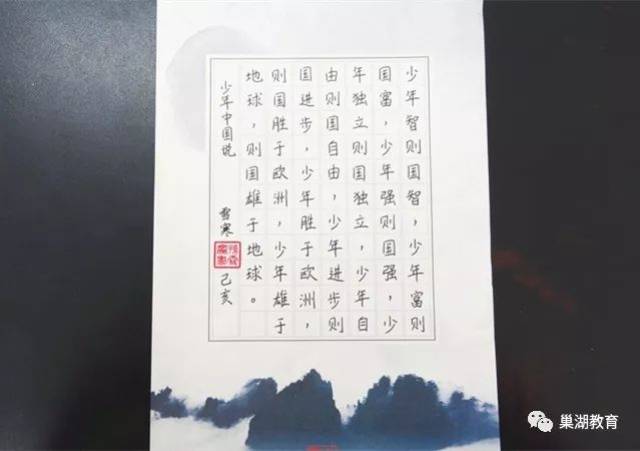 少年智则国智，少年富则
国富，少年强则国强，少
年独立则国独立，少年自
由则国自由，少年进步则
国进步，少年胜于欧洲，
则国胜于欧洲，少年雄于
地球，则国雄于地球。
少年中国说 雪寒 己亥
巢湖教育